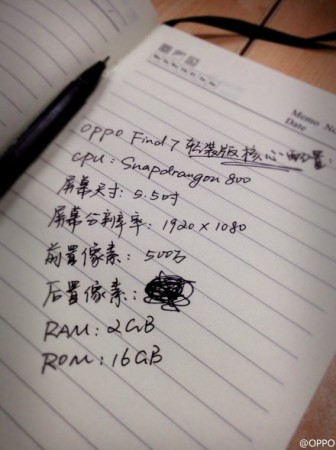 Memo No
Date
OPPO Find 7 轻装版核心配置:
CPU: Snapdrangon 800
屏幕尺寸: 5.5吋
屏幕分辨率: 1920×1080
前置像素: 500万
后置像素:
RAM: 2GB
ROM: 16GB
@OPPO